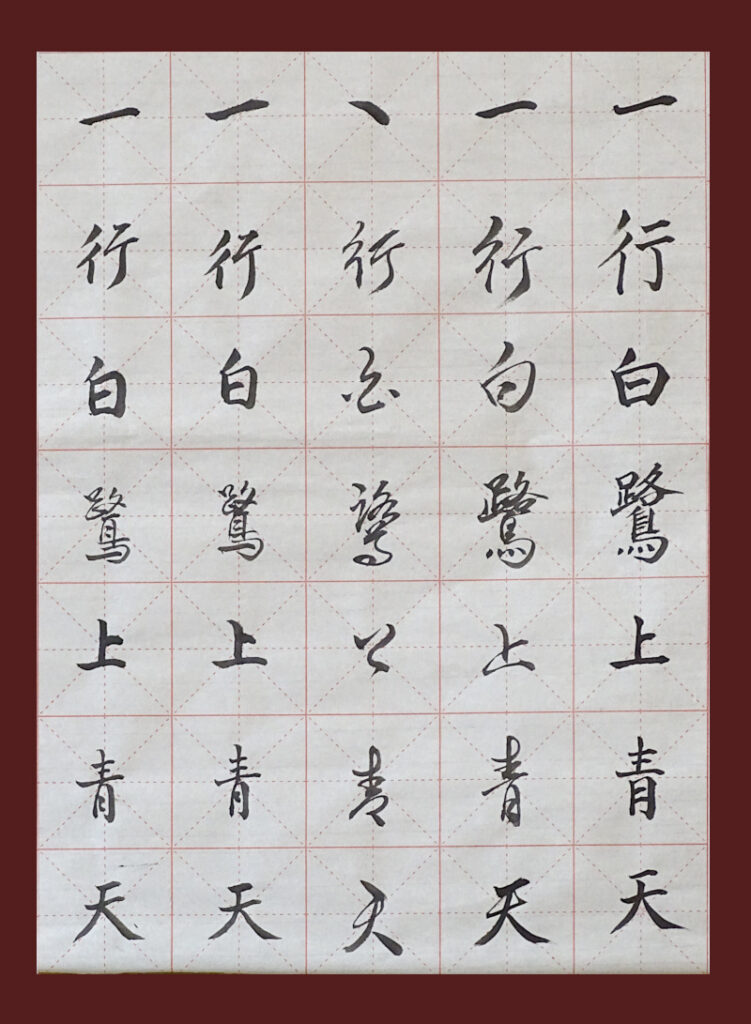 一行白鷺上青天
一行白鷺上青天
一行白鷺上青天
一行白鷺上青天
一行白鷺上青天